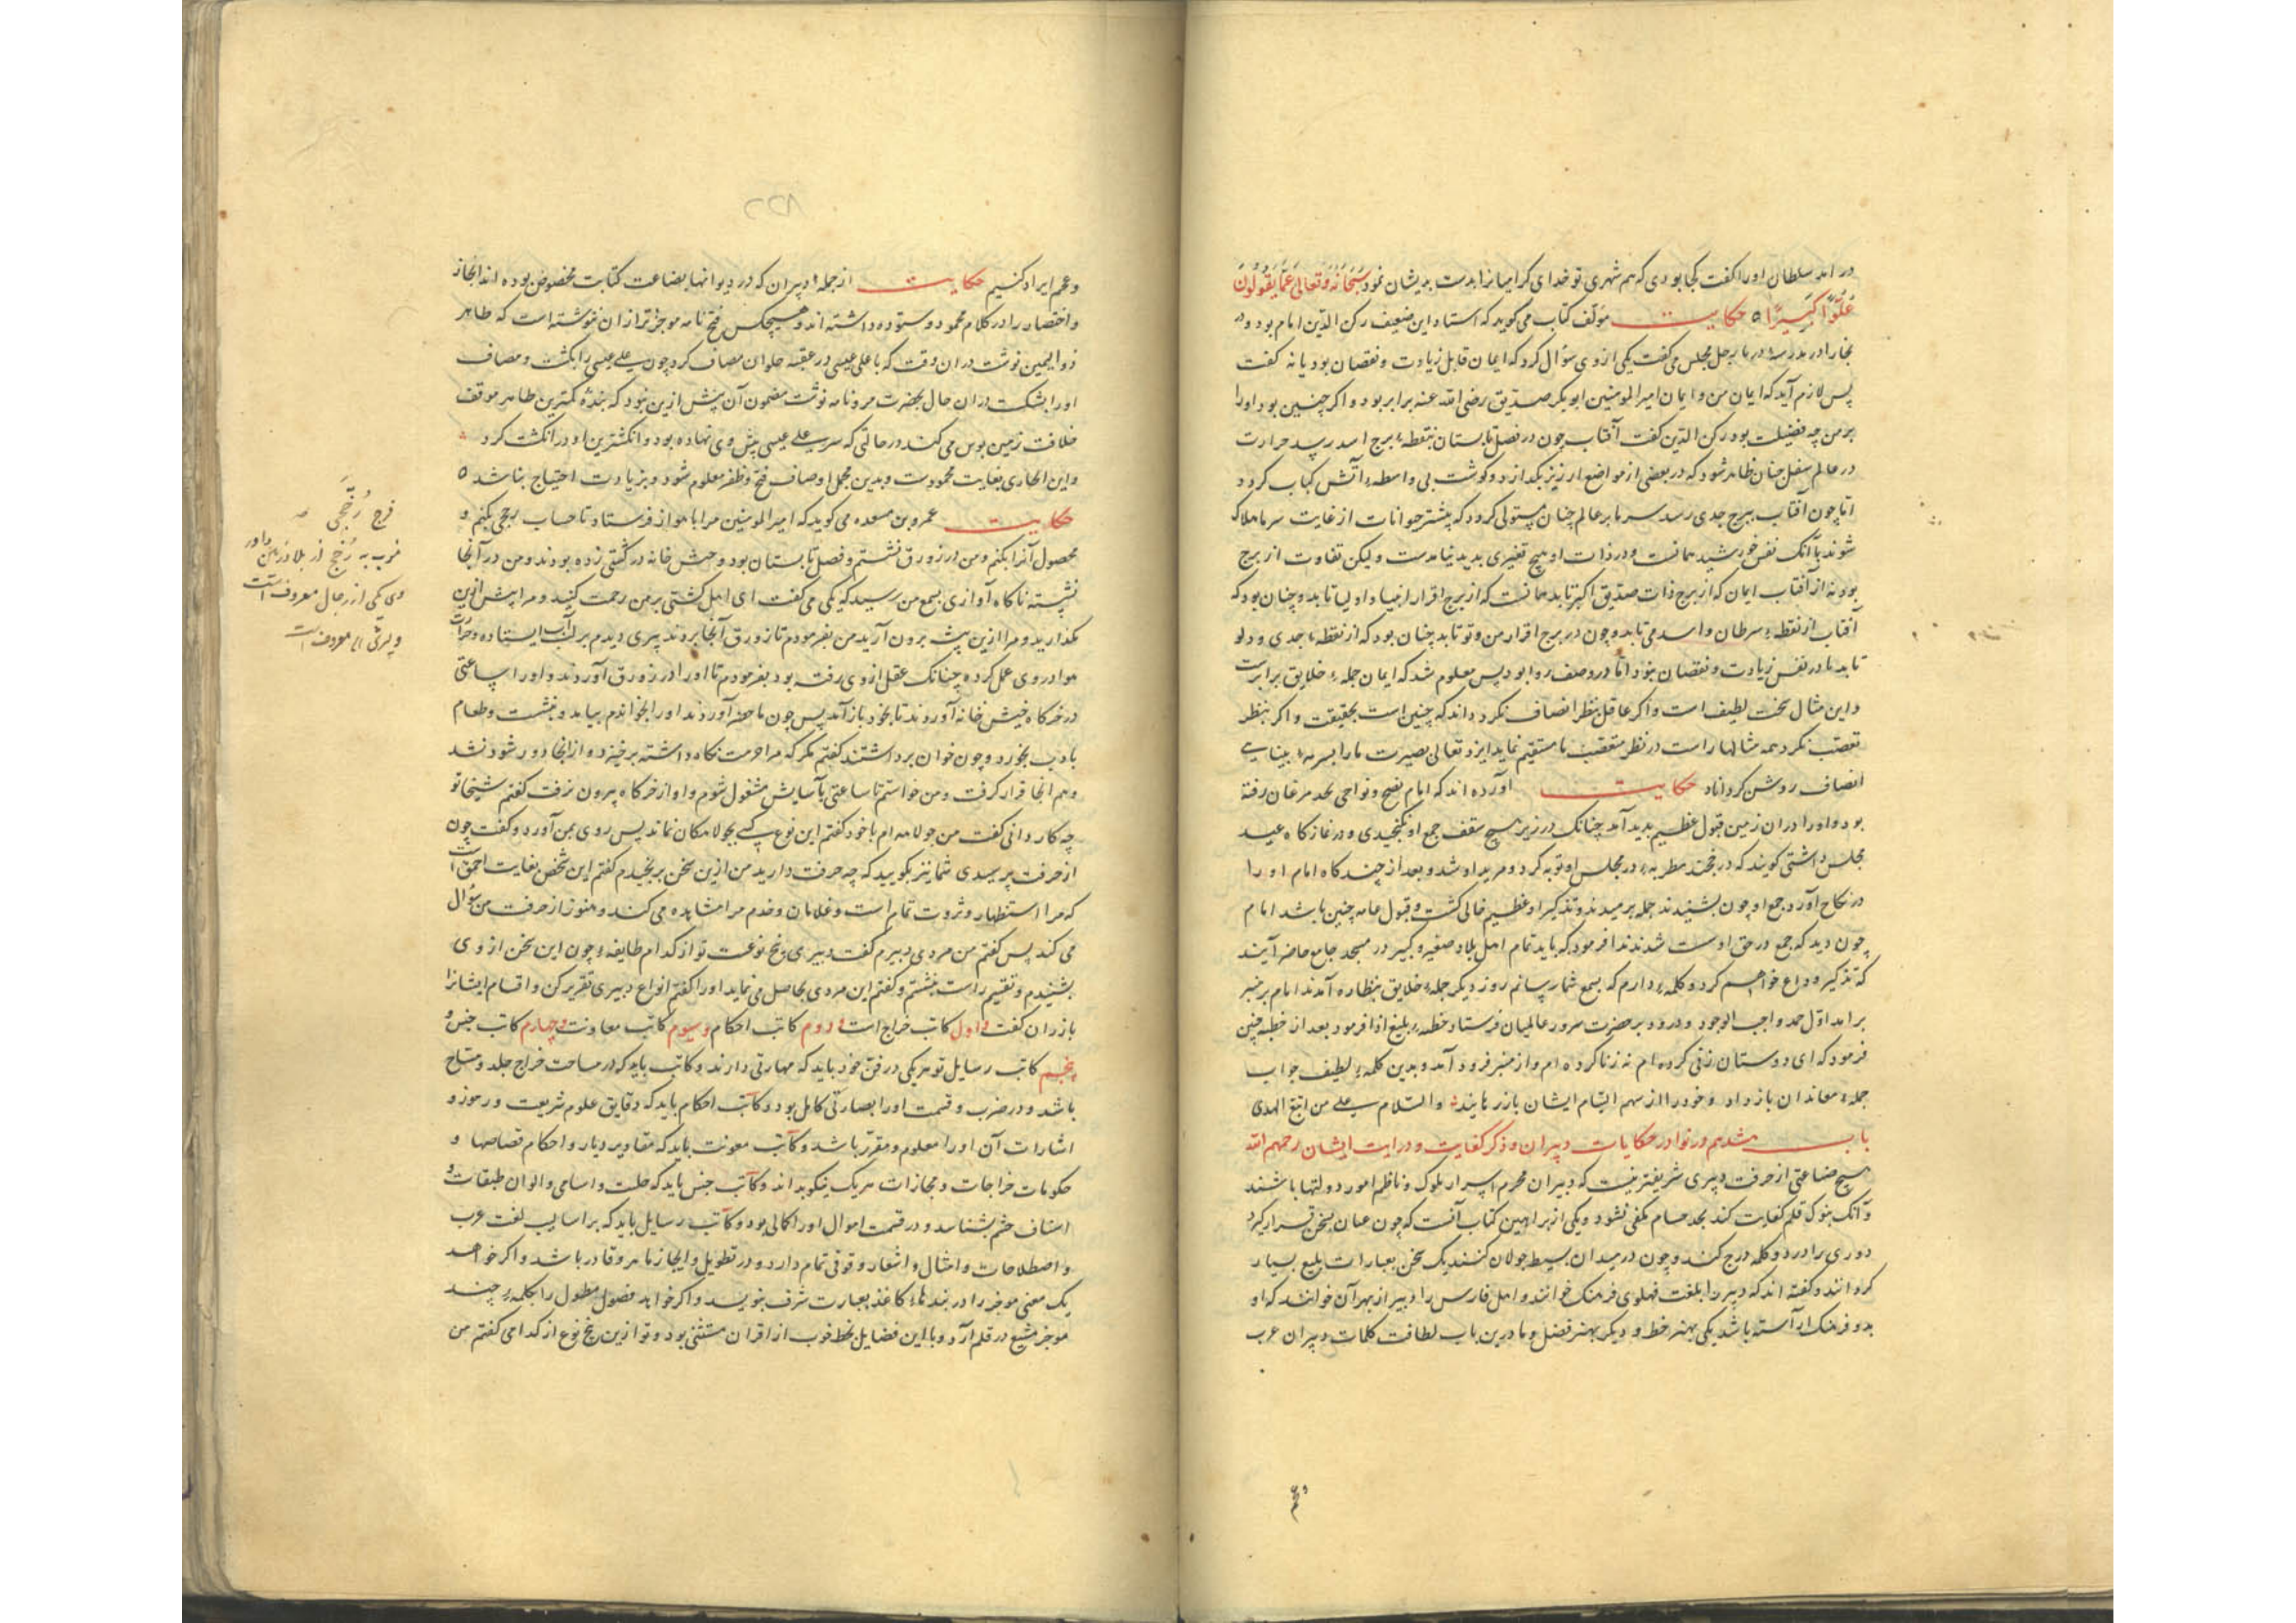 در آمد سلطان او را گفت کجا بودی که هم شهری تو خدای کرامیانرا بدست بدیشان نمود سُبْحَانَهُ وَتَعَالَی عَمَّا یَقُولُونَ
عُلُوًّا کَبِیرًا ٥ حکایت مؤلف کتاب می گوید که استاد این ضعیف رکن الدین امام بود و در
بخارا در مدرسهٔ مجلس می گفت یکی از وی سؤال کرد که ایمان قابل زیادت و نقصان بود یا نه گفت
پس لازم آید که ایمان من و ایمان امیر المومنین ابوبکر صدیق رضی الله عنه برابر بود و اگر چنین بود او را
بر من چه فضیلت بود رکن الدین گفت آفتاب چون در فصل تابستان بنقطهٔ برج اسد رسید حرارت
در عالم سفلی چنان ظاهر شود که در بعضی از مواضع ارزیز بگدازد و گوشت بی واسطهٔ آتش کباب گردد
اما چون آفتاب ببرج جدی رسد سرما بر عالم چنان مستولی گردد که بیشتر حیوانات از غایت سرما هلاک
شوند با آنک نفس خورشید همانست و در ذات او هیچ تغیری پدید نیامدست و لیکن تفاوت از برج
بود نه از آفتاب ایمان که از برج ذات صدیق اکبر تابد همانست که از برج اقرار انبیا و اولیا تابد و چنان بود که
آفتاب از نقطهٔ سرطان و اسد می تابد و چون در برج اقرار من و تو تابد چنان بود که از نقطهٔ جدی و دلو
تابد تا در نفس زیادت و نقصان نبود اما در وصف روا بود پس معلوم شد که ایمان جملهٔ خلایق برابرست
و این مثال سخت لطیف است و اگر عاقل بنظر انصاف نگرد داند که چنین است بحقیقت و اگر بنظر
تعصب نگرد همه مثالها راست در نظر متعصب نا مستقیم نماید ایزد تعالی بصیرت ما را بسرمهٔ بینایی
انصاف روشن گرداناد حکایت آورده اند که امام بفشح و نواحی مرغان رفته
بود و او را در آن زمین قبول عظیم پدید آمد چنانک در زیر هیچ سقف جمع او نگنجیدی و در نماز گاه عید
مجلس داشتی گویند که درفخند مطربه در مجلس او توبه کرد و مرید او شد و بعد از چند گاه امام او را
در نکاح آورد جمع او چون بشنیدند جمله برمیدند و تذکیر او عظیم خالی گشت و قبول عامه چنین باشد امام
چون دید که جمع در حق او سست شدند ندا فرمود که باید تمام اهل بلاد صغیر و کبیر در مسجد جامع حاضر آیند
که تذکیر وداع خواهم کرد و کلمهٔ دارم که بسمع شما رسانم روز دیگر جملهٔ خلایق بنظاره آمدند امام بر منبر
بر آمد اوّل حمد واجب الوجود و درود بر حضرت سرور عالمیان فرستاد خطبهٔ بلیغ ادا فرمود بعد از خطبه چنین
فرمود که ای دوستان زنی کرده ام نه زنا کرده ام و از منبر فرود آمد و بدین کلمهٔ لطیف جواب
جملهٔ معاندان باز داد و خود را از سهم ایشان باز رهانید و السّلام علی من اتبع الهدی
باب هشتم در نوادر حکایات دبیران و ذکر کفایت و درایت ایشان رحمهم الله
هیچ صناعتی از حرفت دبیری شریفتر نیست که دبیران محرم اسرار ملوک و ناظم امور دولتها باشند
و آنک بنوک قلم کفایت کند بحد حسام مکفی نشود و یکی از براهین کتاب آنست که چون عنان سخن گیرد
دوری را در دو کلمه درج کند و چون در میدان بسیط جولان کنند یک سخن بعبارات بلیغ بسیار
گردانند و گفته اند که دبیر را بلغت فهلوی فرهنگ خوانند و اهل فارس را دبیر از بهر آن خوانند که او
بدو فرهنگ آراسته باشد یکی بهنر خط و دیگر بهنر فضل و ما درین باب لطافت کلمات دبیران عرب
و عجم
و عجم ایراد کنیم حکایت از جملهٔ دبیران که در دیوانها بصناعت کتابت مخصوص بوده اند ایجاز
و اختصار را در کلام محمود و ستوده داشته اند و هیچکس فتح نامه موجزتر از آن ننوشته است که طاهر
ذو الیمین نوشت در آن وقت که با علی عیسی در عقبه حلوان مصاف کرد چون علی عیسی را بکشت و مصاف
او را بشکست در آن حال بحضرت مرو نامه نوشت مضمون آن بیش ازین نبود که بندهٔ کمترین طاهر موقف
خلافت زمین بوس می کند در حالتی که سر علی عیسی پیش وی نهاده بود و انگشترین او در انگشت کرد
و این ایجازی بغایت محمودست و بدین مجمل اوصاف فتح و ظفر معلوم شود و بزیادت احتیاج نباشد ٥
حکایت عمرو بن مسعده می گوید که امیر المومنین مرا باهواز فرستاد تا حساب رجحی بکنم و
محصول آنرا بکنم و من در زورق نشستم و فصل تابستان بود و خیش خانه در کشتی زده بودند و من در آنجا
نشسته ناگاه آوازی بسمع من رسید که یکی می گفت ای اهل کشتی بر من رحمت کنید و مرا پیش ازین
مگذارید و مرا ازین بیشه برون آرید من بفرمودم تا زورق آنجا بردند پیری دیدم بر لب آب ایستاده و حرارت
هوا در وی عمل کرده چنانک عقل از وی رفته بود بفرمودم تا او را در زورق آوردند و او را ساعتی
در خرگاه خیش خانه آوردند تا بخود باز آمد پس چون ما حضر آوردند او را بخواندم بیامد و بنشست و طعام
با ادب بخورد و چون خوان برداشتند گفتم مگر که مرا حرمت نگاه داشته برخیزد و از آنجا دور شود نشد
و هم آنجا قرار گرفت و من خواستم تا ساعتی بآسایش مشغول شوم و او از خرگاه بیرون نرفت گفتم شیخا تو
چه کار دانی گفت من جولاهه ام با خود گفتم این نوع بجولاهگان نماند پس روی بمن آورد و گفت چون
از حرفت پرسیدی شما نیز بگویید که چه حرفت دارید من ازین سخن برنجیدم گفتم این شخص بغایت احمق است
که مرا استظهار و ثروت تمام است و غلامان و خدم مرا مشاهده می کند و هنوز از حرفت من سؤال
می کند پس گفتم من مردی دبیرم گفت دبیری پنج نوعست تو از کدام طایفهٔ چون این سخن از وی
بشنیدم و تقسیم راست بنشستم و گفتم این مرد بی حاصل می نماید او را گفتم انواع دبیری تقریر کن و اقسام ایشانرا
باز ران گفت اول کاتب خراج است و دوم کاتب احکام و سیوم کاتب معاونت و چهارم کاتب جیش و
پنجم کاتب رسایل تو هر یکی در فن خود باید که مهارتی دارند و کاتب باید که در مساحت خراج جلد و مساح
باشد و در ضرب و قسمت او را بصارتی کامل بود و کاتب احکام باید که دقایق علوم شریعت و رموز و
اشارات آن او را معلوم و مقرر باشد و کاتب معونت باید که مقادیر دیات و احکام قصاصها و
حکومات جراحات و مجازات هر یک نیکو بداند و کاتب جیش باید که حلیت و اسامی و الوان طبقات و
اصناف حشم بشناسد و در قسمت اموال او را کمالی بود و کاتب رسایل باید که بر اسالیب لغت عرب
و اصطلاحات و امثال و اشعار وقوفی تمام دارد و در تطویل و ایجاز ماهر و قادر باشد و اگر خواهد
یک معنی موجز را در بندهاء کاغذ بعبارت شرف بنویسد و اگر خواهد فضول مطول را بکلمهٔ چند
موجز مشبع در قلم آرد و با این فضایل بخط خوب از اقران مستثنی بود و تو ازین پنج نوع از کدامی گفتم من
فرج رُخَّجی
منسوب به رُخَّج از بلاد
وی یکی از رجال معروف است
و پسرش معروف است